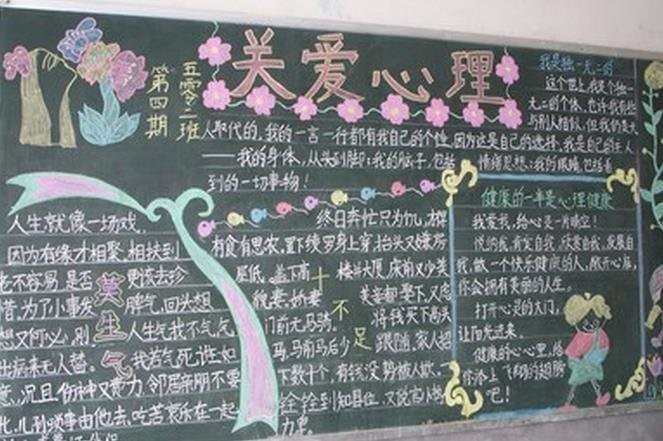 关爱心理
五零二班
第四期
我是独一无二的
这个世上我是个独一
无二的个体,也许我有些
与别人相似,但我仍是无
人取代的。我的一言一行都有我自己的个性,因为这是自己的选择。我是自己的主人
——我的身体,从头到脚;我的脑子,包括情绪思想;我的眼睛,包括看
到的一切事物!
莫生气
人生就像一场戏,
因为有缘才相聚。相扶到
老不容易,是否更该去珍
惜。为了小事发脾气,回头想
想又何必。别人生气我不气,气
出病来无人替。我若气死谁如
意,况且伤神又费力。邻居亲朋不要
比,儿孙琐事由他去。吃苦享乐在一起
十不足
终日奔忙只为饥,才得
有食有思衣。置下绫罗身上穿,抬头又嫌房
屋低。盖下高楼并大厦,床前又少美
貌妻。娇妻美妾都娶下,又虑
门前无马骑。将钱买下高头
马,马前马后少跟随。家人招
下数十个,有钱没势被人欺。一
铨铨到知县位,又说官小势
力卑。
健康的一半是心理健康
我爱我,给心灵一片晴空!
悦纳我,肯定自我,欣赏自我,发展自
我,做一个快乐健康的人,敞开心扉,
你会拥有美丽的人生。
打开心灵的大门,
让阳光进来。
健康的心心里,给
你添上飞翔的翅膀
吧!